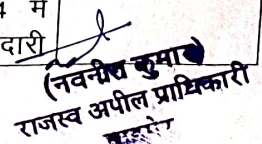 में
दारी
(नवनीत कुमार)
राजस्व अपील प्राधिकारी